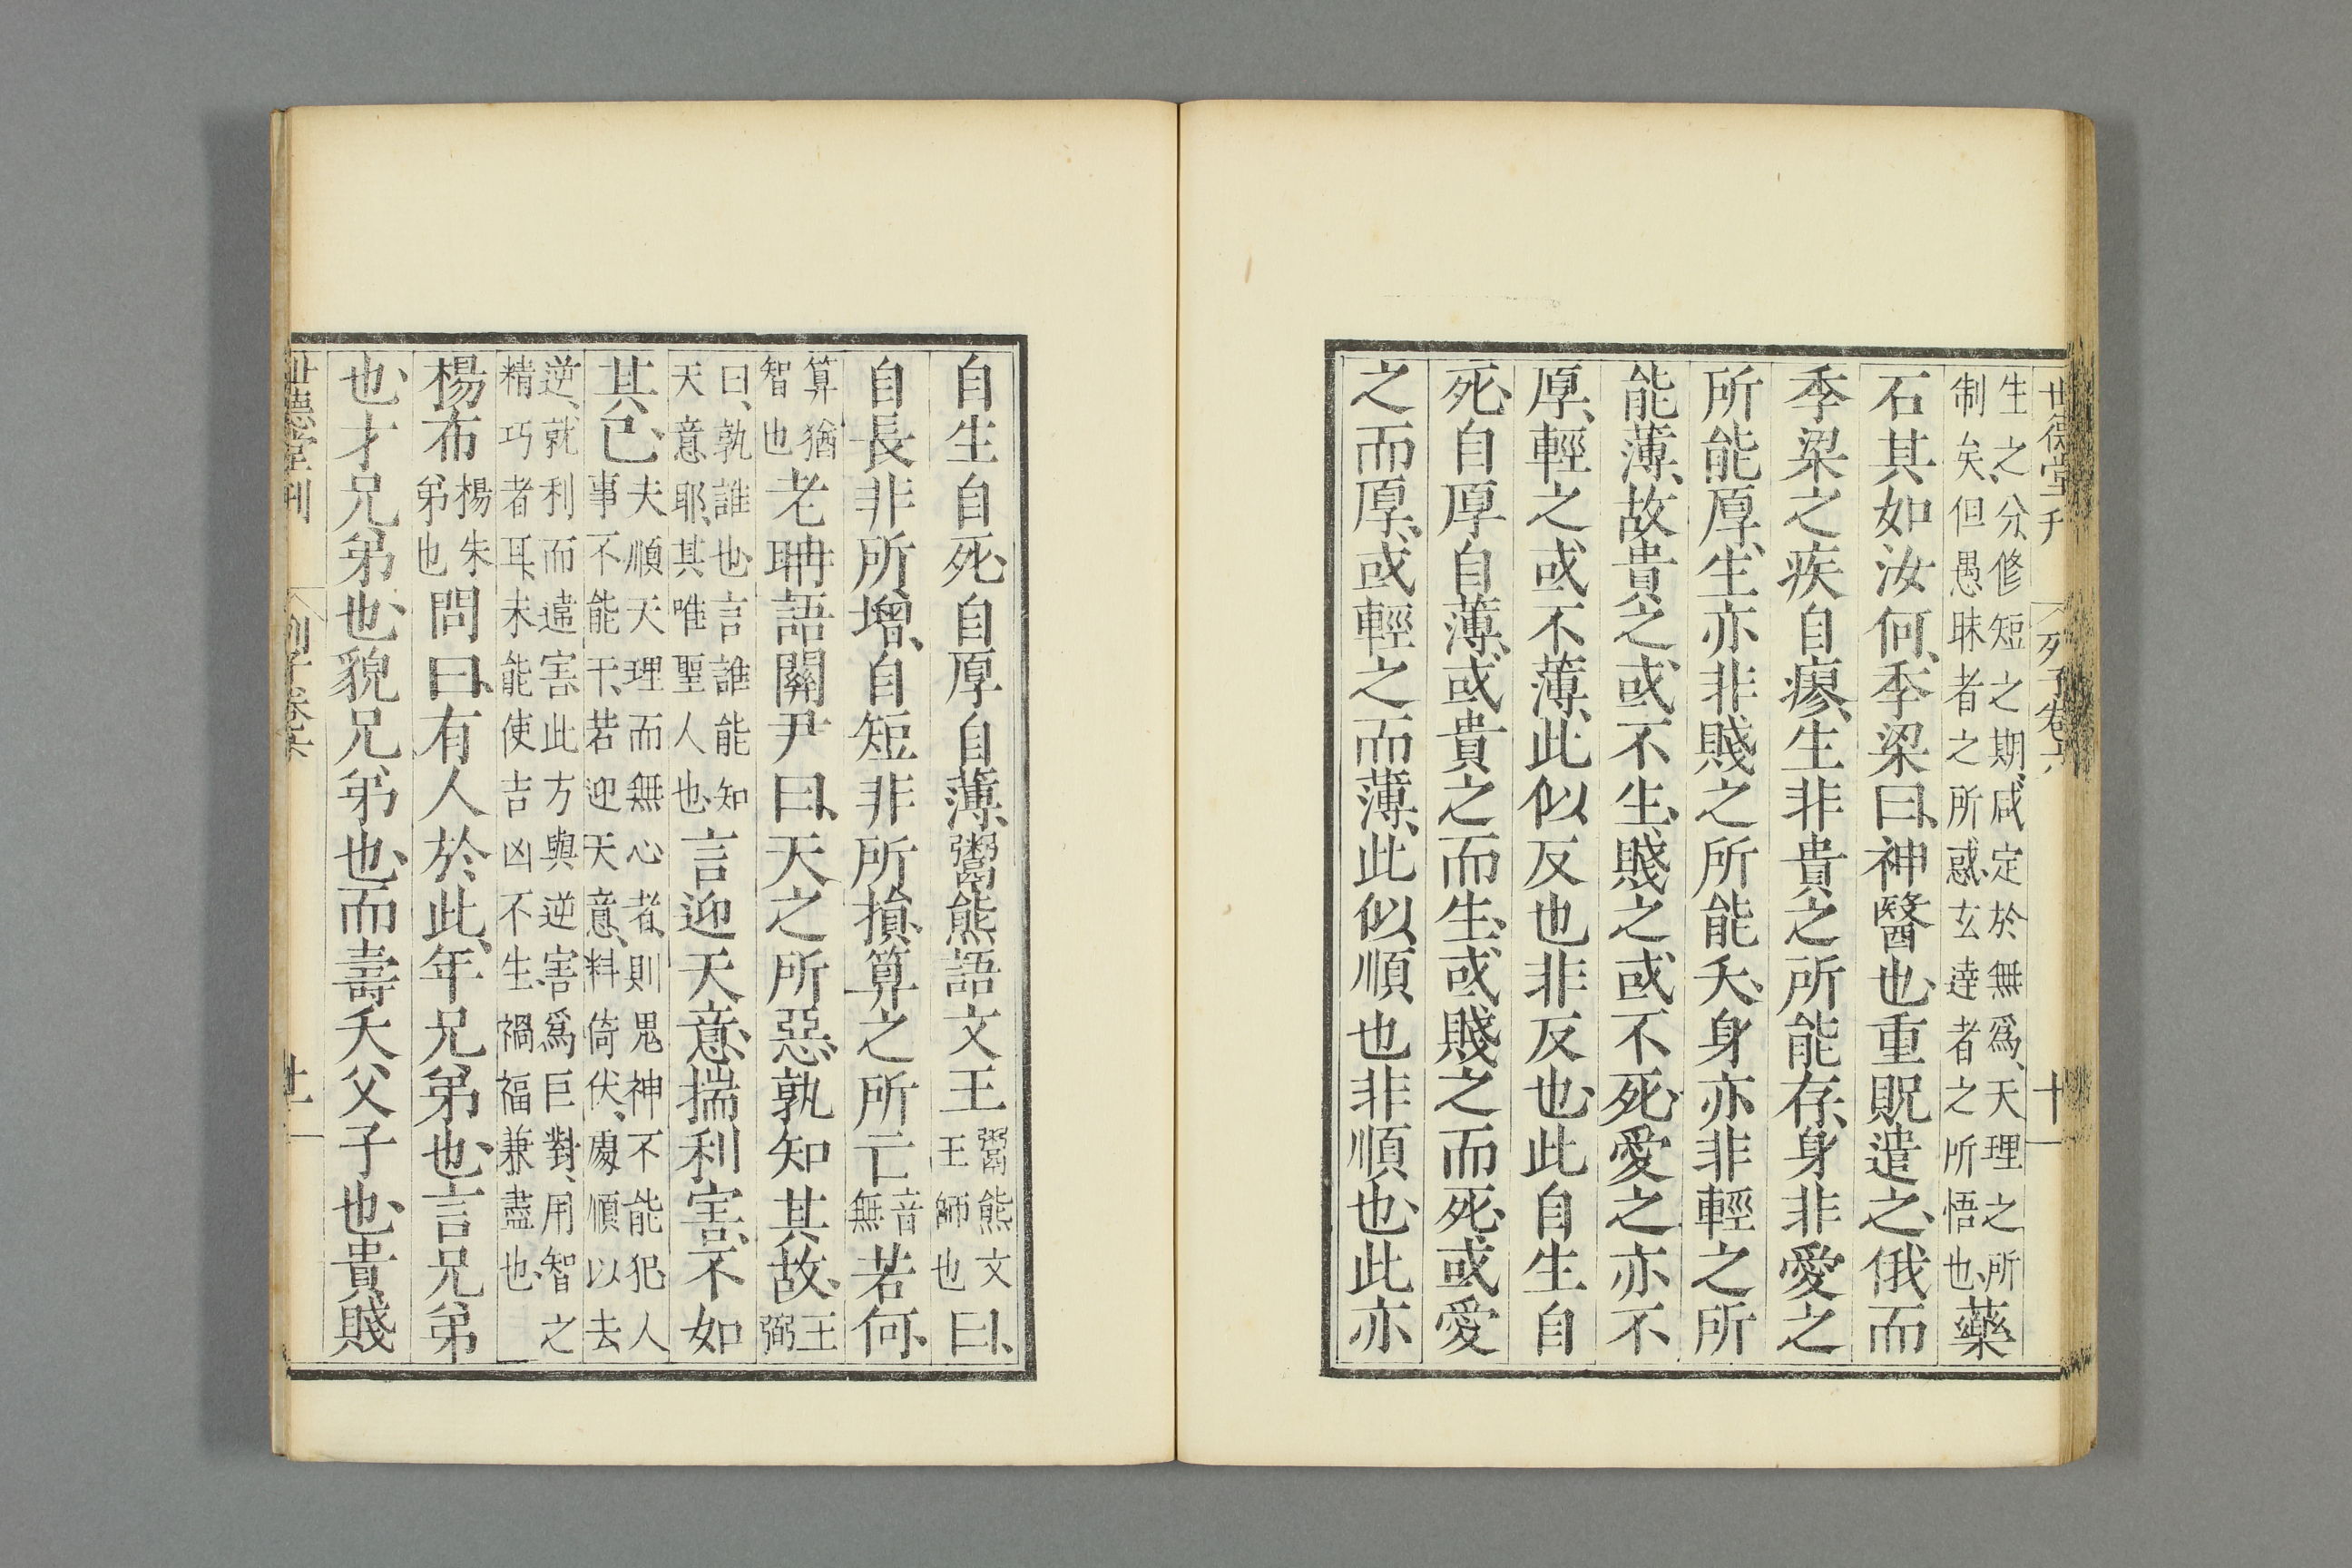 世德堂刊 列子卷六 十一
生之分、修短之期、咸定於無爲、天理之所
制矣、但愚昧者之所惑、玄達者之所悟也、藥
石其如汝何、季梁曰、神醫也、重貺遣之、俄而
季梁之疾自瘳、生非貴之所能存、身非愛之
所能厚、生亦非賤之所能夭、身亦非輕之所
能薄、故貴之或不生、賤之或不死、愛之亦不
厚、輕之或不薄、此似反也非反也、此自生自
死、自厚自薄、或貴之而生、或賤之而死、或愛
之而厚、或輕之而薄、此似順也非順也、此亦
自生自死、自厚自薄、鬻熊語文王鬻熊文王師也曰、
自長非所增、自短非所損、算之所亡音無若何、
算猶智也老聃語關尹曰、天之所惡、孰知其故、王弼
曰、孰誰也、言誰能知天意耶、其唯聖人也、言迎天意、揣利害、不如
其已、夫順天理而無心者、則鬼神不能犯、人事不能干、若迎天意、料倚伏、處順以去
逆、就利而違害、此方與逆害爲巨對、用智之精巧者耳、未能使吉凶不生禍福兼盡也、
楊布楊朱弟也問曰、有人於此、年兄弟也、言兄弟
也、才兄弟也、貌兄弟也、而壽夭父子也、貴賤
世德堂刊 列子卷六 十一